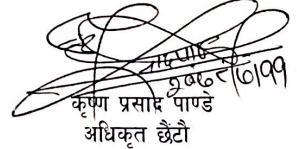 २०७८/७/११
कृष्ण प्रसाद पाण्डे
अधिकृत छैंटौ